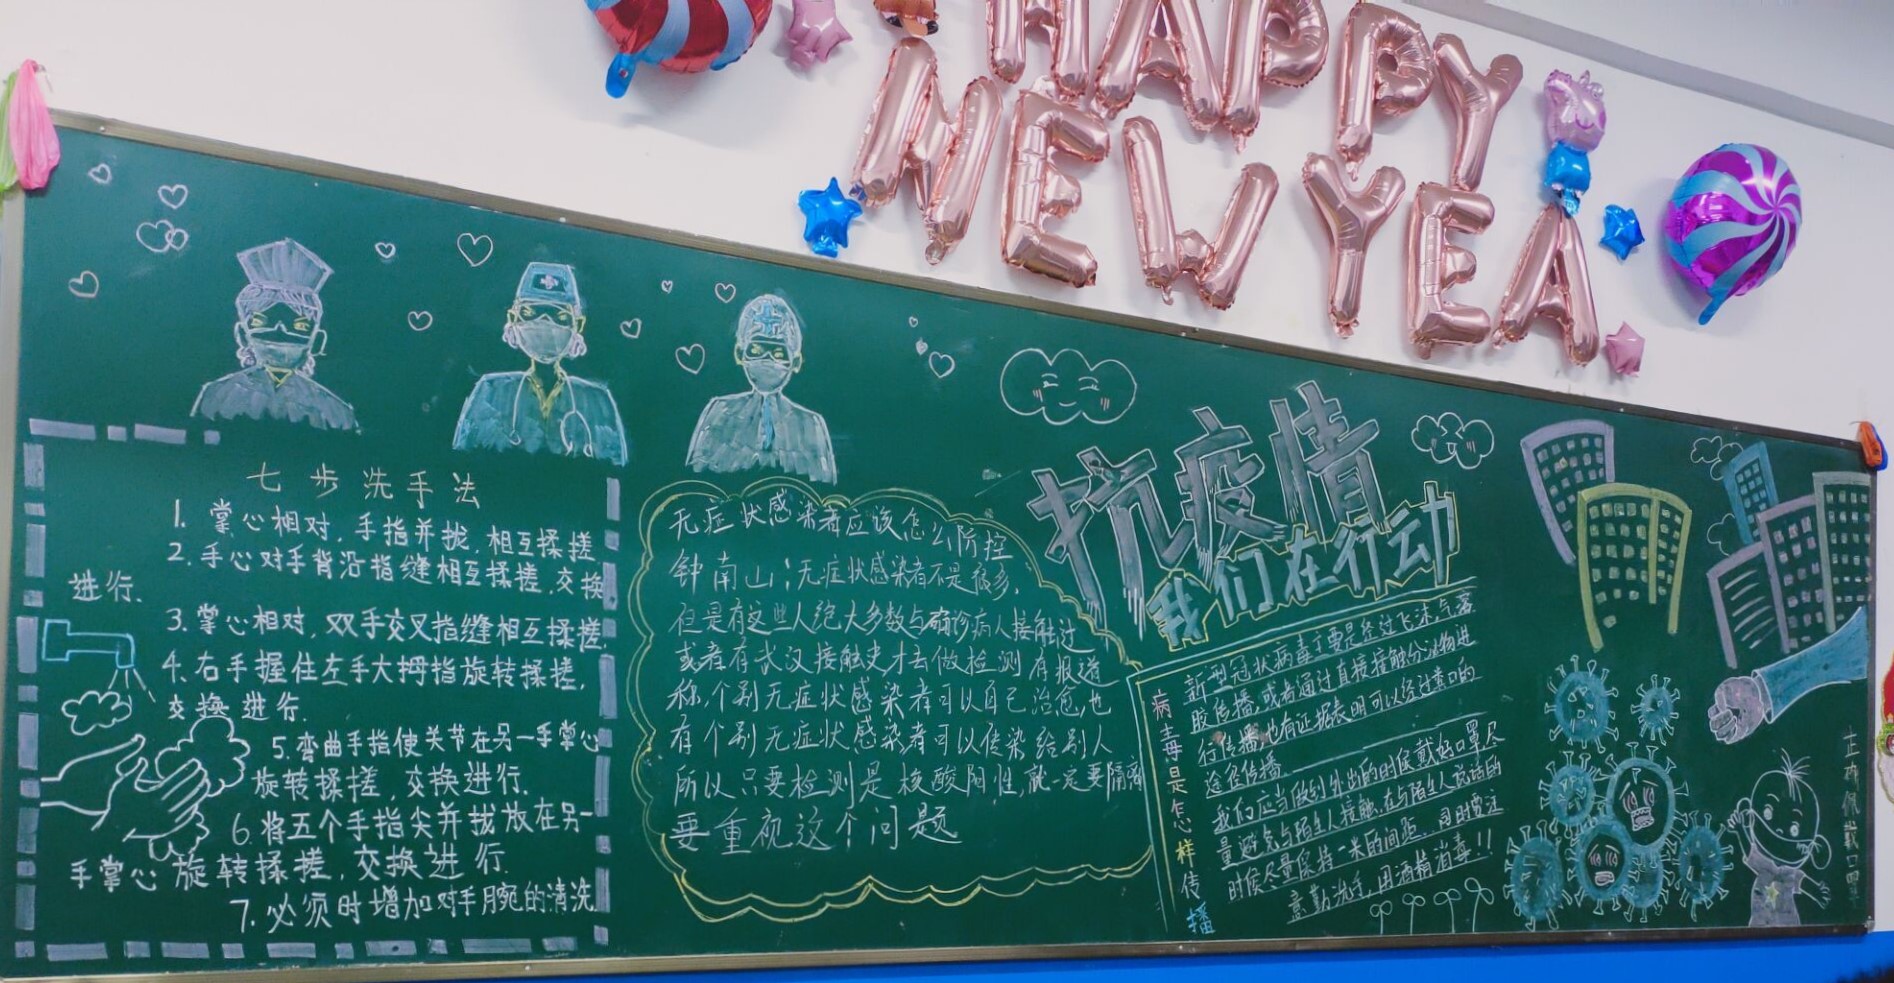 HAPPY
NEW YEA
七步洗手法
1. 掌心相对,手指并拢,相互揉搓
2. 手心对手背沿指缝相互揉搓,交换
进行.
3. 掌心相对,双手交叉指缝相互揉搓,
4. 右手握住左手大拇指旋转揉搓,
交换进行.
5. 弯曲手指使关节在另一手掌心
旋转揉搓,交换进行.
6. 将五个手指尖并拢放在另一
手掌心旋转揉搓,交换进行.
7. 必须时增加对手腕的清洗
无症状感染者应该怎么防控
钟南山:无症状感染者不是很多,
但是有这些人绝大多数与确诊病人接触过
或者有武汉接触史才去做检测有报道
称,个别无症状感染者可以自己治愈,也
有个别无症状感染者可以传染给别人
所以只要检测是核酸阳性,就一定要隔离
要重视这个问题
抗疫情
我们在行动
病毒是怎样传播
新型冠状病毒主要是经过飞沫,气溶
胶传播,或者通过直接接触分泌物进
行传播,也有证据表明可以经过粪口的
途径传播.
我们应当做到外出的时候戴好口罩尽
量避免与陌生人接触,在与陌生人说话的
时候尽量保持一米的间距.同时要注
意勤洗手,用酒精消毒!!
正确佩戴口罩